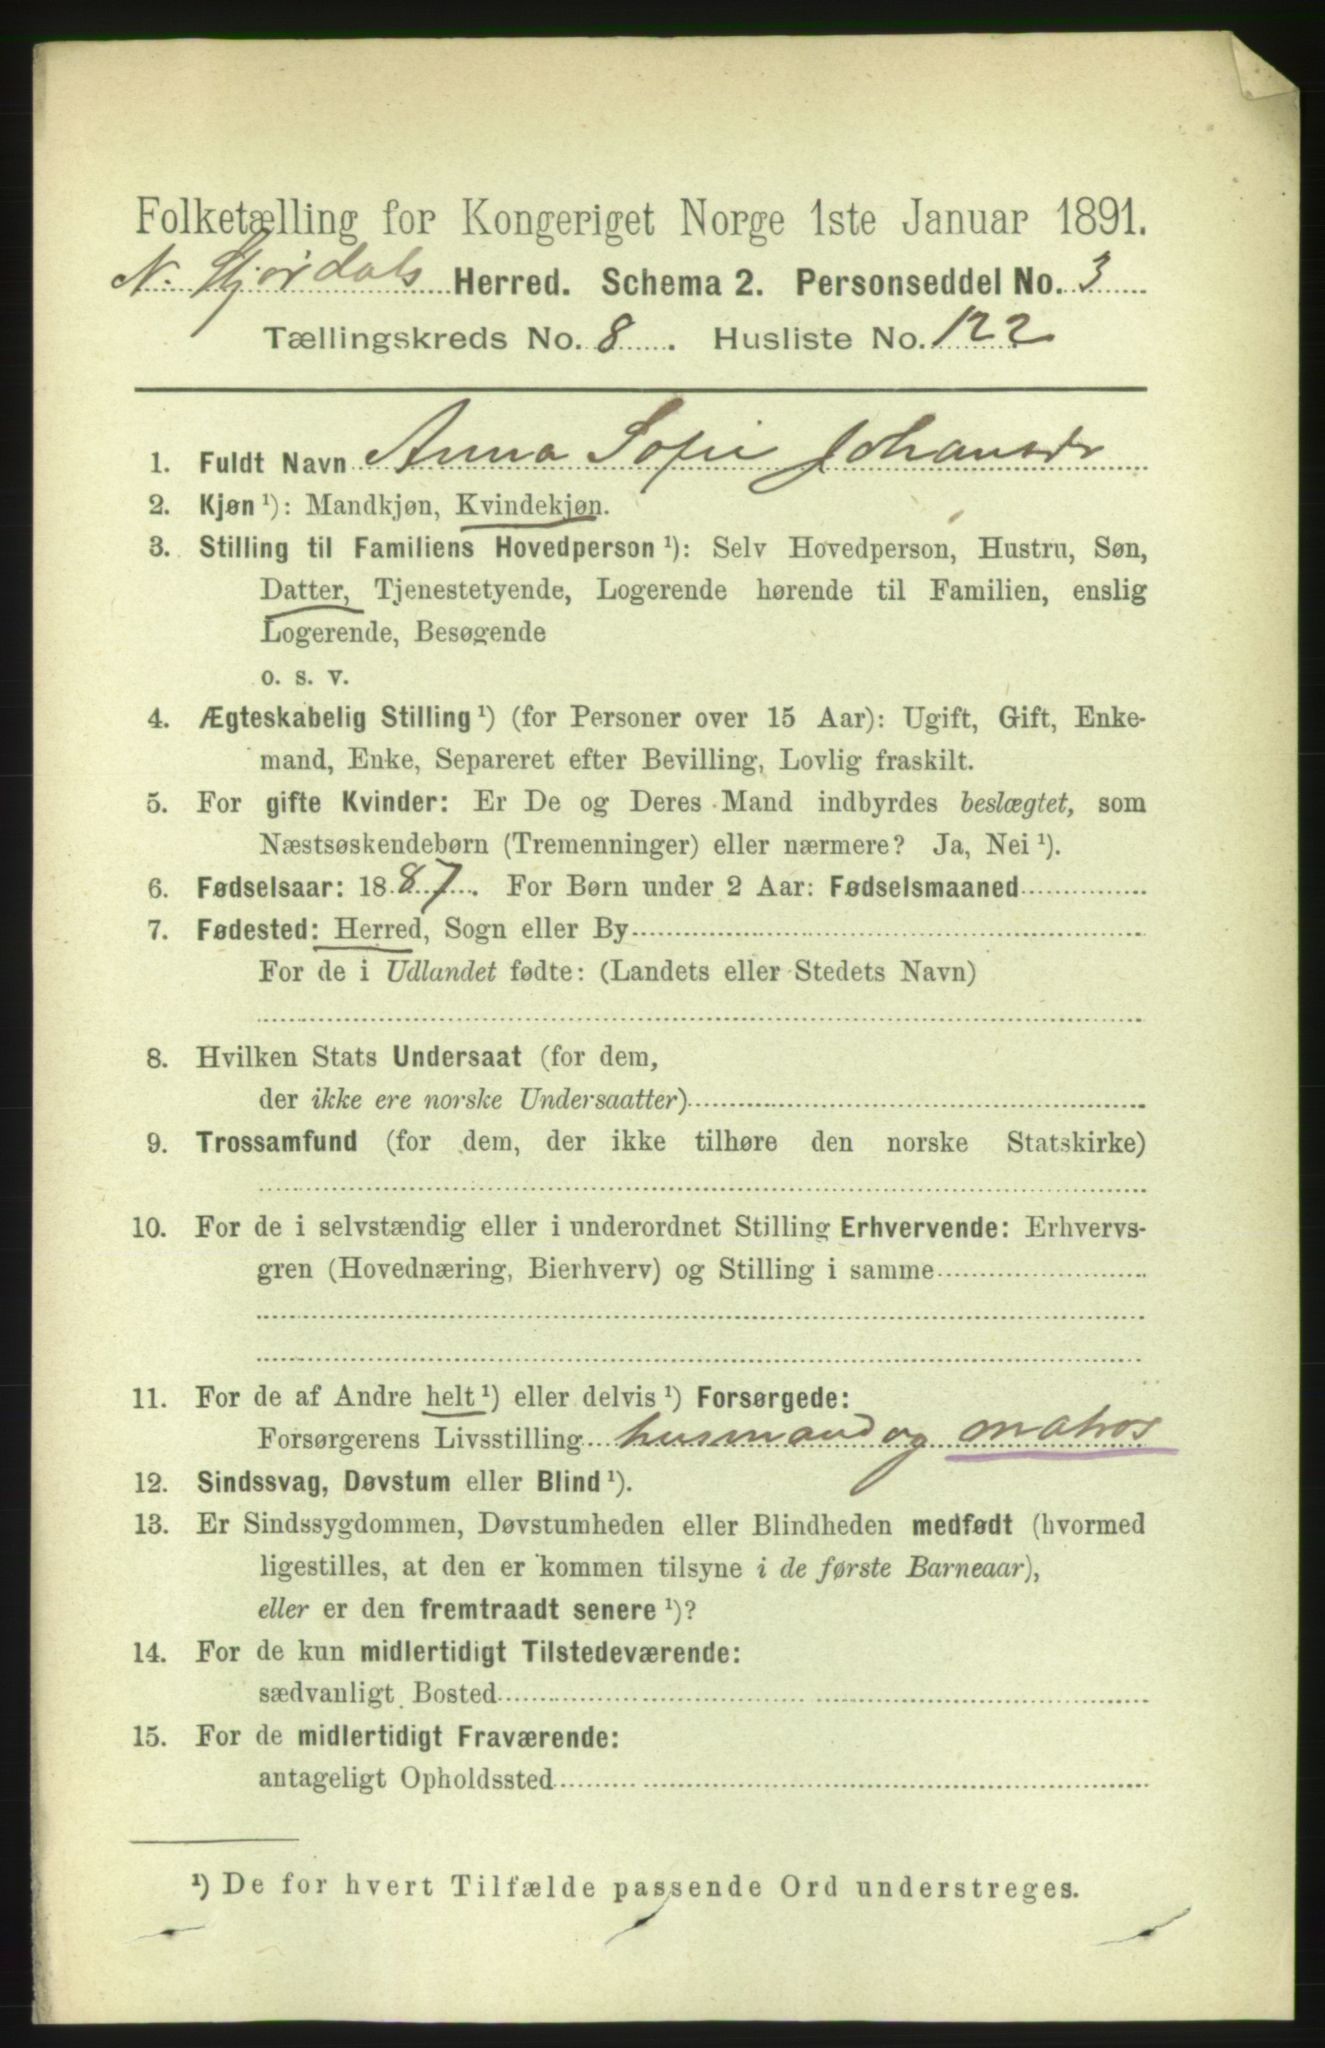 Folketælling for Kongeriget Norge 1ste Januar 1891.
N. Stjørdals Herred. Schema 2. Personseddel No. 3
Tællingskreds No. 8. Husliste No. 122
1. Fuldt Navn Anna Sofie Johansdr
2. Kjøn ¹): Mandkjøn, Kvindekjøn.
3. Stilling til Familiens Hovedperson ¹): Selv Hovedperson, Hustru, Søn,
Datter, Tjenestetyende, Logerende hørende til Familien, enslig
Logerende, Besøgende
o. s. v.
4. Ægteskabelig Stilling ¹) (for Personer over 15 Aar): Ugift, Gift, Enke-
mand, Enke, Separeret efter Bevilling, Lovlig fraskilt.
5. For gifte Kvinder: Er De og Deres Mand indbyrdes beslægtet, som
Næstsøskendebørn (Tremenninger) eller nærmere? Ja, Nei ¹).
6. Fødselsaar: 1887. For Børn under 2 Aar: Fødselsmaaned
7. Fødested: Herred, Sogn eller By
For de i Udlandet fødte: (Landets eller Stedets Navn)
8. Hvilken Stats Undersaat (for dem,
der ikke ere norske Undersaatter)
9. Trossamfund (for dem, der ikke tilhøre den norske Statskirke)
10. For de i selvstændig eller i underordnet Stilling Erhvervende: Erhvervs-
gren (Hovednæring, Bierhverv) og Stilling i samme
11. For de af Andre helt ¹) eller delvis ¹) Forsørgede:
Forsørgerens Livsstilling husmand og matros
12. Sindssvag, Døvstum eller Blind ¹).
13. Er Sindssygdommen, Døvstumheden eller Blindheden medfødt (hvormed
ligestilles, at den er kommen tilsyne i de første Barneaar),
eller er den fremtraadt senere ¹)?
14. For de kun midlertidigt Tilstedeværende:
sædvanligt Bosted
15. For de midlertidigt Fraværende:
antageligt Opholdssted
¹) De for hvert Tilfælde passende Ord understreges.